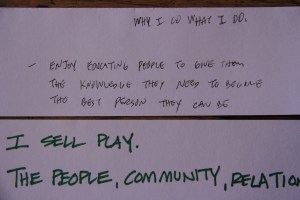 WHY I DO WHAT I DO.
- ENJOY EDUCATING PEOPLE TO GIVE THEM
THE KNOWLEDGE THEY NEED TO BECOME
THE BEST PERSON THEY CAN BE
I SELL PLAY.
THE PEOPLE, COMMUNITY, RELATION